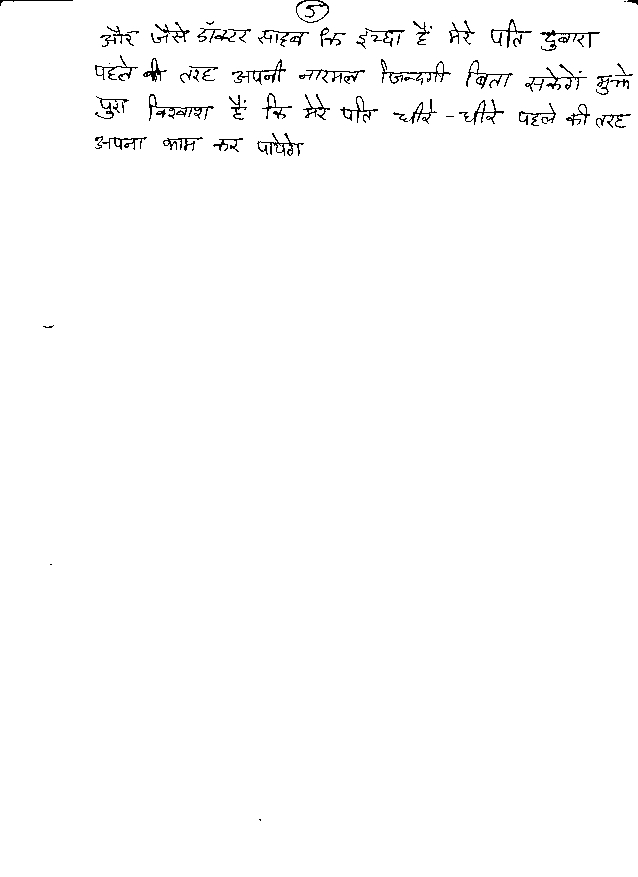 5
और जैसे डॉक्टर साहब कि इच्छा हैं मेरे पति दुबारा
पहले की तरह अपनी नारमल जिन्दगी बिता सकेगें मुझे
पुरा विश्वाश हैं कि मेरे पति धीरे - धीरे पहले की तरह
अपना काम कर पायेगे